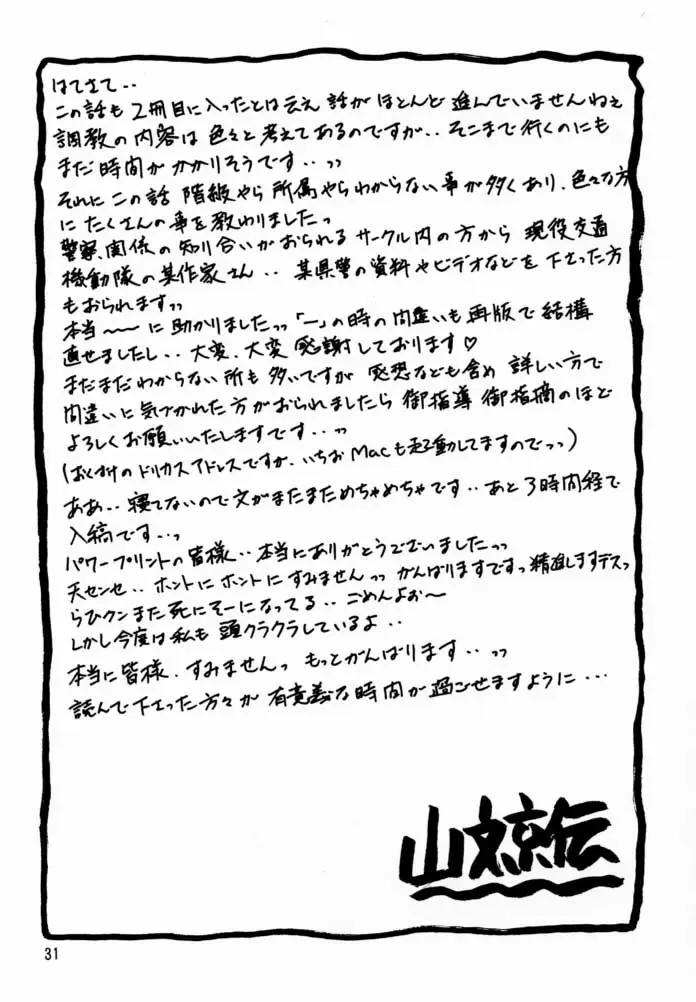 はてさて・・
この話も 2冊目に入ったとは云え 話が ほとんど 進んでいませんねぇ
調教の内容は 色々と考えてあるのですが・・そこまで行くのにも
まだ時間が かかりそうです・・ッッ
それに この話 階級やら 所属やら わからない事が多くあり、色々な方
に たくさんの事を教わりましたっ
警察関係の知り合いがおられる サークル内の方から 現役交通
機動隊の某作家さん・・ 某県警の資料やビデオなどを 下さった方
もおられますッッ
本当〜〜に 助かりましたッッ「一」の時の間違いも再版で 結構
直せましたし・・大変、大変 感謝しております♡
まだまだ わからない所も 多いですが 感想なども含め 詳しい方で
間違いに気づかれた方がおられましたら 御指導 御指摘のほど
よろしくお願いいたしますです・・ッッ
(おくづけのドリカスアドレスですが、いちお Macも起動してますのでっっ)
ああ・・寝てないので文がまたまためちゃめちゃです・・あと3時間経で
入稿です・・っ
パワープリントの皆様・・本当にありがとうございましたッッ
天センセ・・ホントに ホントに すみませんッッ がんばりますですっ精進しますデスっ
らひクン また 死にそーになってる・・ごめんよぉ〜
しかし今度は私も 頭クラクラしているよ・・
本当に皆様、すみませんっ もっとがんばります・・ッッ
読んで下さった方々が 有意義な時間が 過ごせますように・・・
山文京伝
31